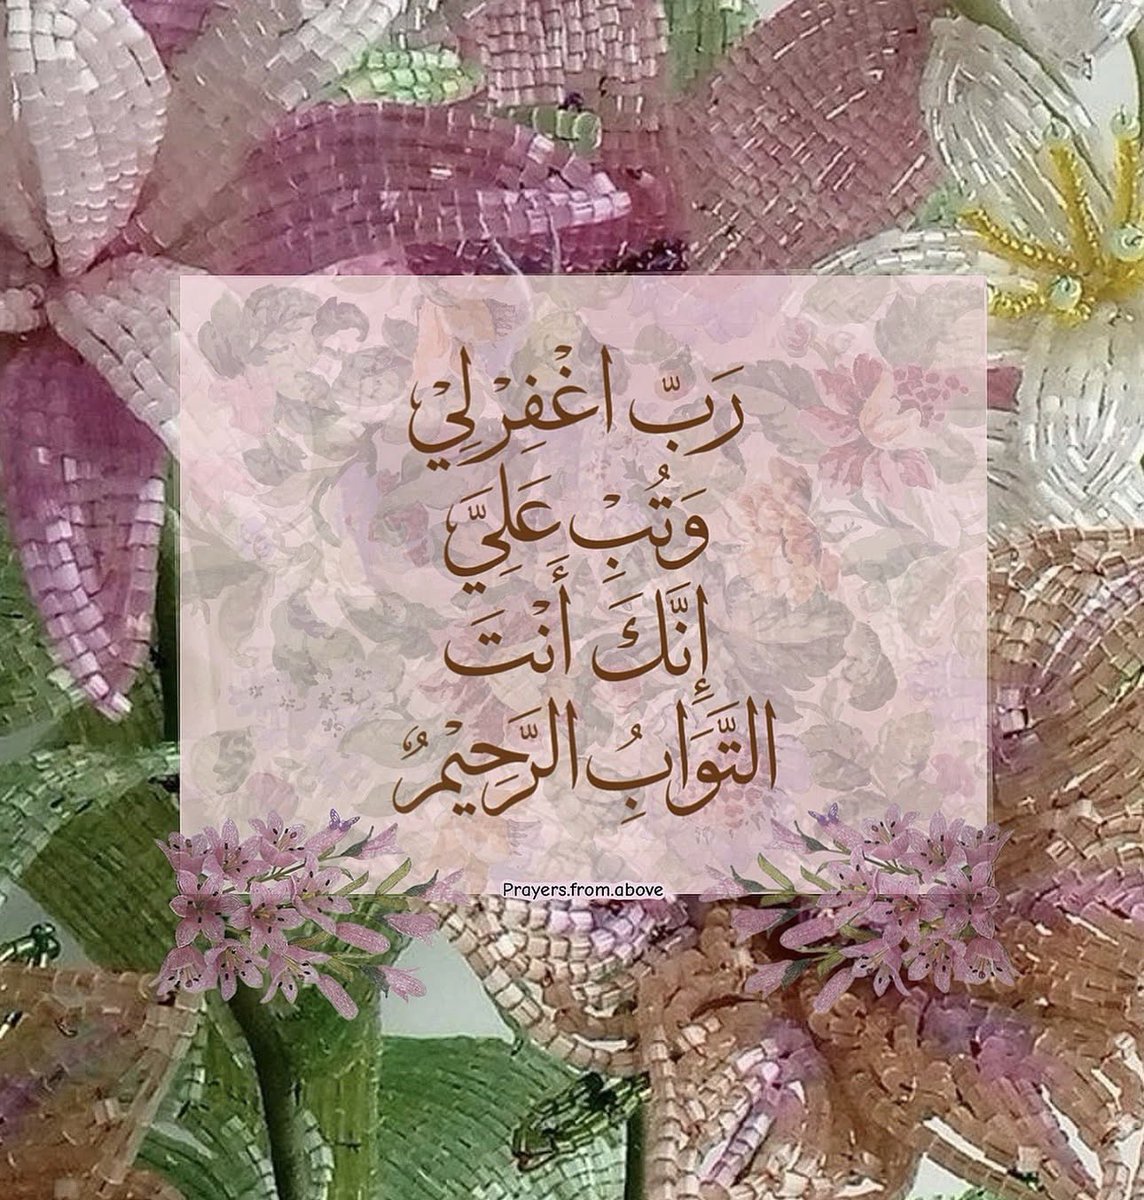 رَبّ اغْفِرْ لِيْ
وَتُبْ عَلِيَّ
إِنَّكَ أَنْتَ
التَّوَابُ الرَّحِيْمُ
Prayers.from.above